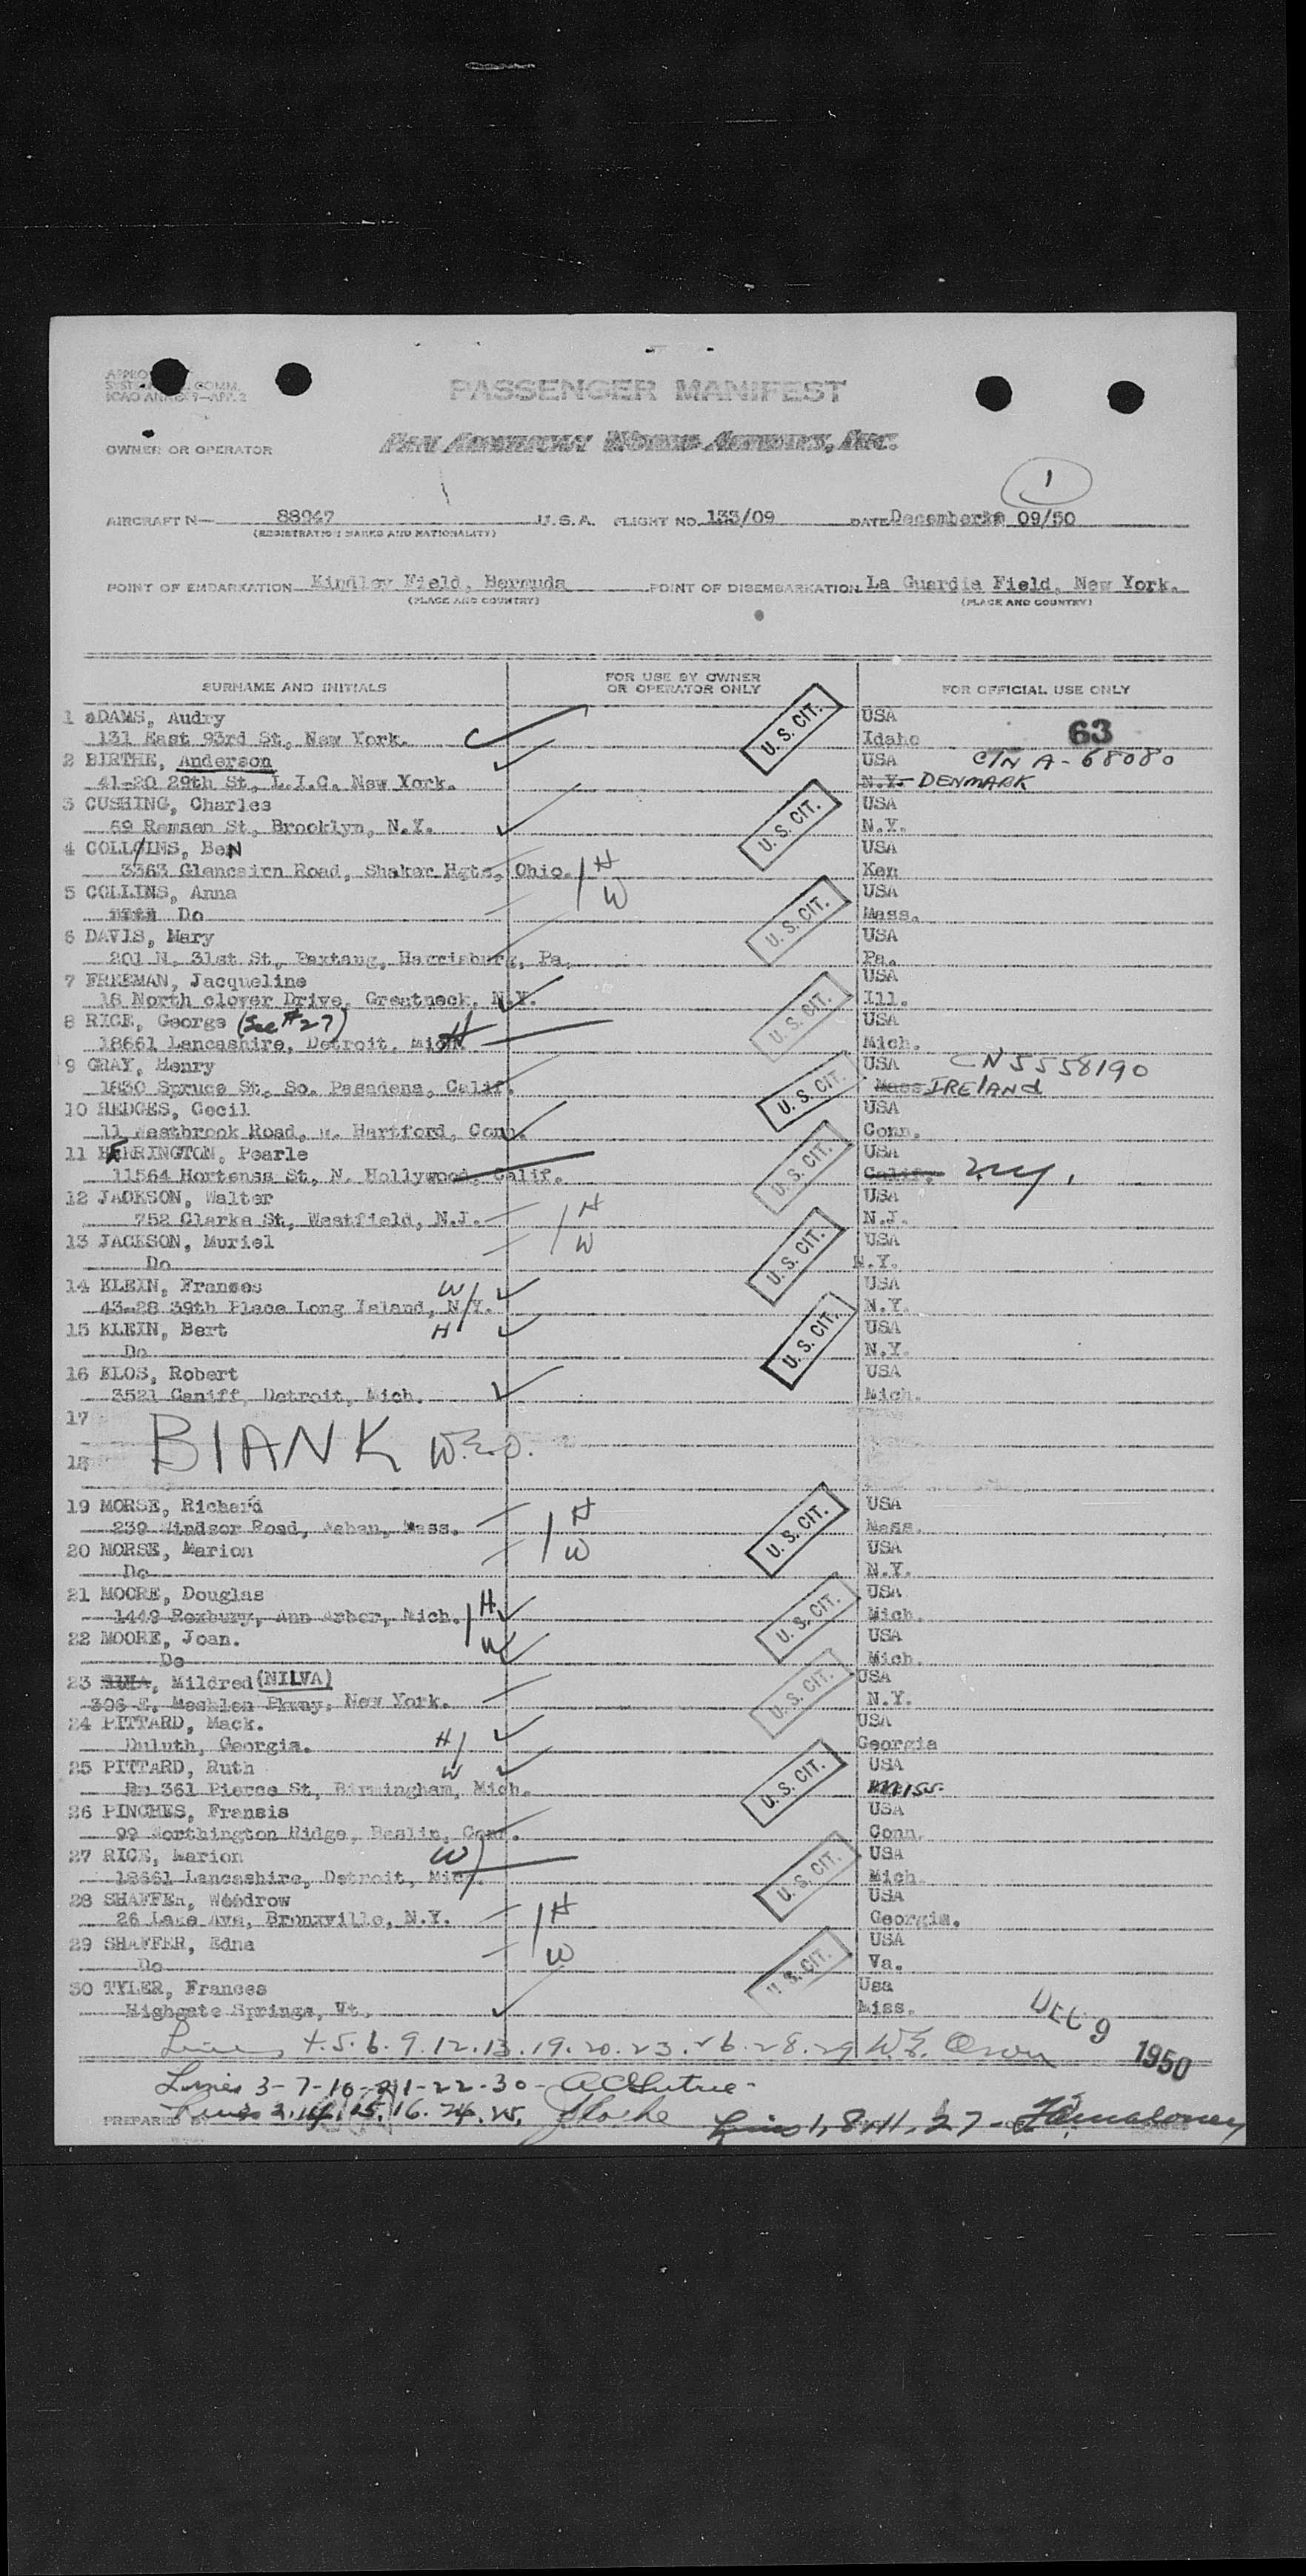 PASSENGER MANIFEST
OWNER OR OPERATOR
1
AIRCRAFT N— 88947 U.S.A. FLIGHT NO. 133/09 DATE December 09/50
(REGISTRATION MARKS AND NATIONALITY)
POINT OF EMBARKATION Kindley Field, Bermuda POINT OF DISEMBARKATION La Guardia Field, New York.
(PLACE AND COUNTRY) (PLACE AND COUNTRY)
SURNAME AND INITIALS FOR USE BY OWNER OR OPERATOR ONLY FOR OFFICIAL USE ONLY
1 aDAMS, Audry USA
131 East 93rd St, New York. U. S. CIT. Idaho 63
2 BIRTHE, Anderson USA C/N A-68080
41-20 29th St, L.I.C. New York. N.Y. DENMARK
3 CUSHING, Charles USA
69 Remsen St, Brooklyn, N.Y. U. S. CIT. N.Y.
4 COLL/INS, BeN USA
3363 Glencairn Road, Shaker Hgts, Ohio. H Ken
5 COLLINS, Anna W USA
Do U. S. CIT. Mass.
6 DAVIS, Mary USA
201 N. 31st St, Paxtang, Harrisburg, Pa. Pa.
7 FREEMAN, Jacqueline USA
18 North clover Drive, Greatneck, N.Y. U. S. CIT. Ill.
8 RICE, George (See #27) USA
18661 Lancashire, Detroit, Mich. H Mich.
9 GRAY, Henry USA CN 5558190
1830 Spruce St, So. Pasadena, Calif. U. S. CIT. Mass IRELAND
10 HEDGES, Cecil USA
11 Westbrook Road, W. Hartford, Conn. Conn.
11 FERRINGTON, Pearle USA
11564 Hortense St, N. Hollywood, Calif. U. S. CIT. Calif. N.Y.
12 JACKSON, Walter H USA
752 Clarks St, Westfield, N.J. N.J.
13 JACKSON, Muriel W USA
Do U. S. CIT. N.Y.
14 KLEIN, Franses W USA
43-28 39th Place Long Island, N.Y. N.Y.
15 KLEIN, Bert H USA
Do U. S. CIT. N.Y.
16 KLOS, Robert USA
3521 Caniff, Detroit, Mich. Mich.
17
BlANK W.E.O.
18
19 MORSE, Richard H USA
239 Windsor Road, Waban, Mass. U. S. CIT. Mass.
20 MORSE, Marion W USA
Do N.Y.
21 MOORE, Douglas H USA
1449 Roxbury, Ann Arbor, Mich. U. S. CIT. Mich.
22 MOORE, Joan. W USA
Do Mich.
23 Mildred (NILVA) USA
306 E. Moshlen Pkway, New York. U. S. CIT. N.Y.
24 PITTARD, Mack. USA
Duluth, Georgia. H Georgia
25 PITTARD, Ruth W USA
361 Pierce St, Birmingham, Mich. U. S. CIT. MISS
26 PINCHES, Fransis USA
99 Worthington Ridge, Beslin, Conn. Conn.
27 RICE, Marion W USA
18661 Lancashire, Detroit, Mich. U. S. CIT. Mich.
28 SHAFFER, Woodrow H USA
26 Lake Ave, Bronxville, N.Y. Georgia.
29 SHAFFER, Edna W USA
Do U. S. CIT. Va.
30 TYLER, Frances Usa
Highgate Springs, Vt. Miss.
DEC 9 1950
Lines 4.5.6.9.12.13.19.20.23.26.28.29
Lines 3-7-10-21-22-30-
Lines 2.14.15.16.24.25.
Lines 1, 8, 11, 27 -
PREPARED BY